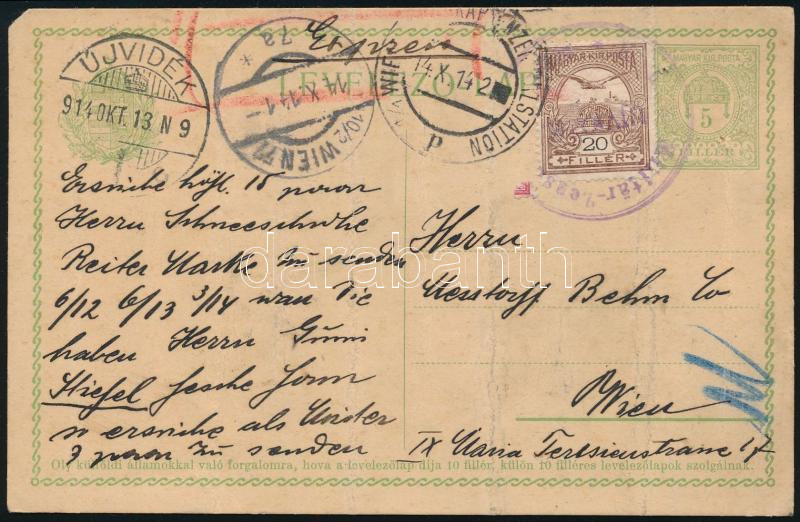 Expressz
LEVELEZŐLAP
ÚJVIDÉK
914 OKT. 13 N 9
* 7a *
14.X.14 1-
10/2 WIEN 71
14.X.14 2
P
MAGYAR KIR. POSTA
20
FILLÉR
MAGYAR KIR. POSTA
5
FILLÉR
Ersuche höfl. 15 paron
Herrn Schneeschuhe
Reiter Marke zu senden
6/12 6/13 3/14 wan Sie
haben Herrn Gumi
Stiefel Form
ersuche als Muster
3 paron zu senden
Herrn
Behm Co
Wien
IX Maria Teresienstrasse 17
Oly külföldi államokkal való forgalomra, hova a levelezőlap díja 10 fillér, külön 10 filléres levelezőlapok szolgálnak.
darabanth